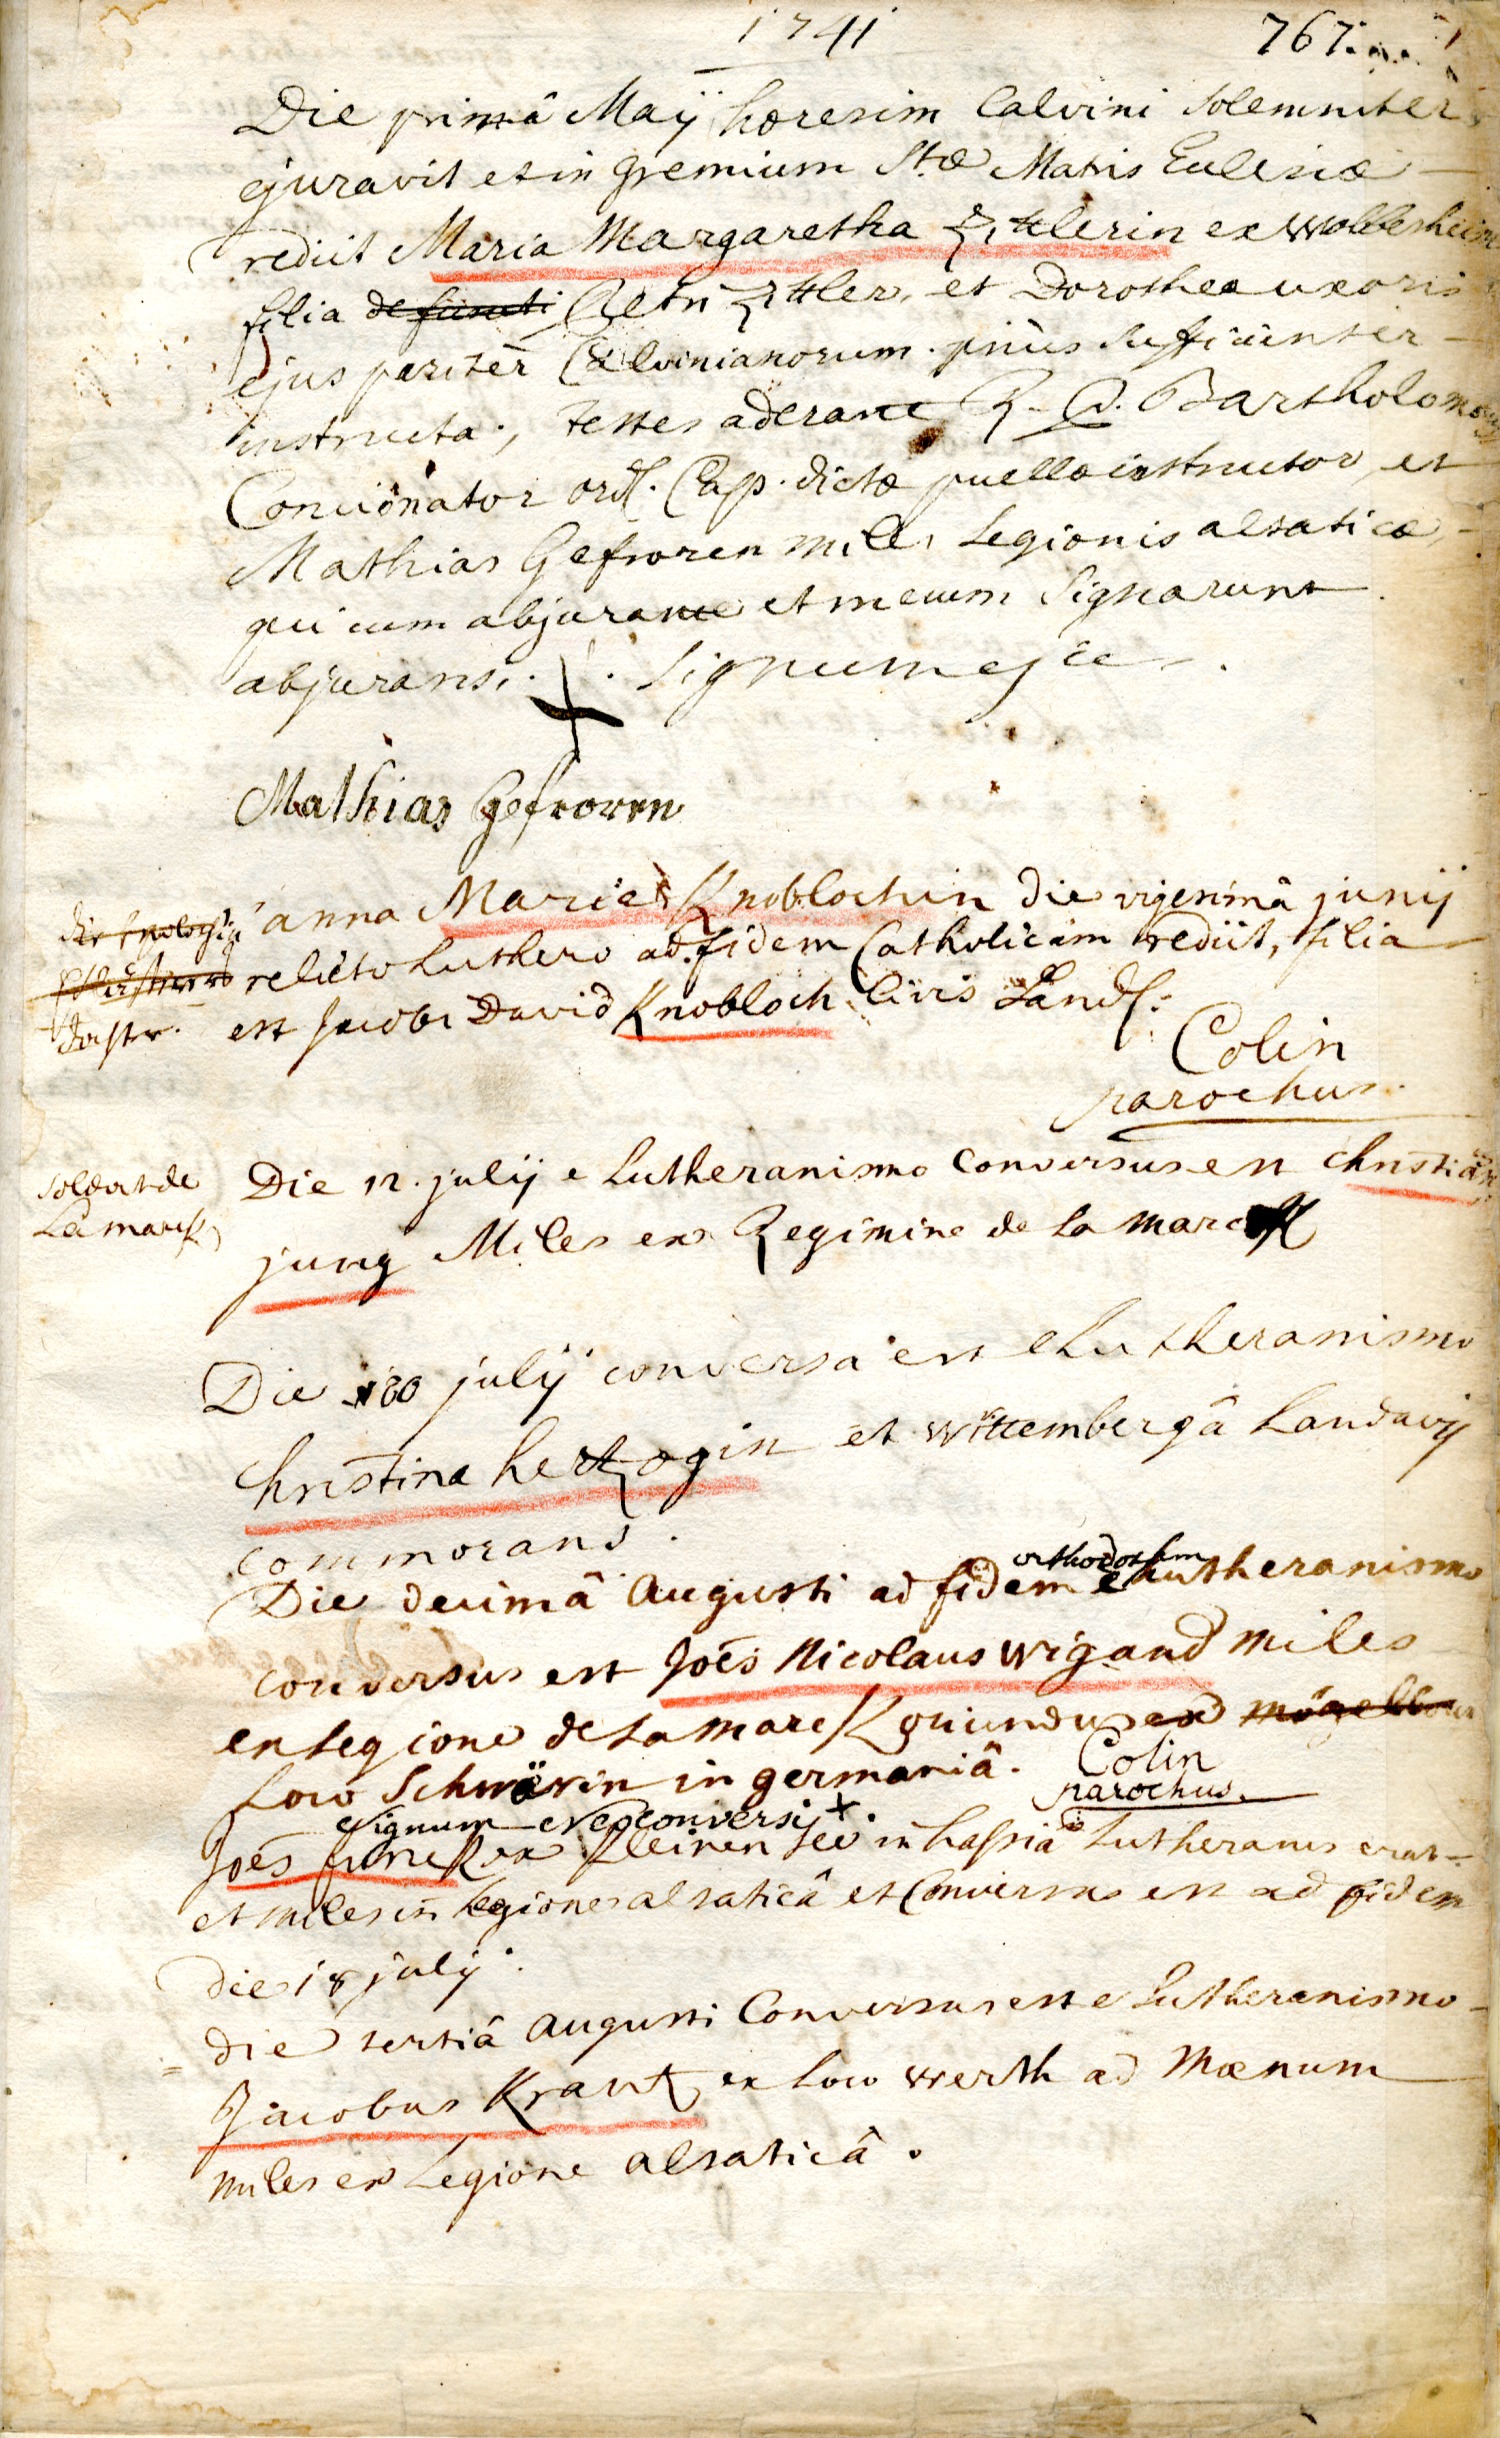 1741
767.
Die primâ Maÿ hæresim Calvini solemniter
ejuravit et in gremium Stæ Matris Eclesiæ
rediit Maria Margaretha Zittlerin ex Wollesheim
filia defuncti Petri Zittler, et Dorothea uxoris
ejus pariter Calvinianorum. priùs sufficienter
instructa, testes aderant R. P. Bartholomæus
Concionator ord. Cap. dictæ puellæ instructor, et
Mathias Gefroren miles Legionis alsaticæ
qui cum abjurante et mecum signarunt.
abjurans. + . Signum ejus
Mathias Gefroren
anna Maria Knoblochin die vigesimâ junij
relicto Luthero ad fidem Catholicam rediit, filia
est Jacobi David Knobloch Civis Land:
Colin
parochus.
soldat de
La marck
Die 12. julij e Lutheranismo Conversus est Christian
jung Miles ex Regimine de la marck
Die 20 julij conversa est e Lutheranismo
Christina hertzogin et Wittembergâ Landavij
commorans.
Die decimâ Augusti ad fidem orthodoxam e Lutheranismo
conversus est Joēs Nicolaus Wigand miles
ex legione de Lamarck oriundus ex
Loco Schwërin in germaniâ. Colin
parochus.
Signum neoconversi +.
Joēs funck ex Kleinen see in hassiâ Lutheranus erat
et miles in legione alsaticâ et Conversus est ad fidem
die 18 julij.
die tertiâ Augusti Conversus est e Lutheranismo
Jacobus Krantz ex Loco Werth ad Mœnum
miles ex Legione alsaticâ.